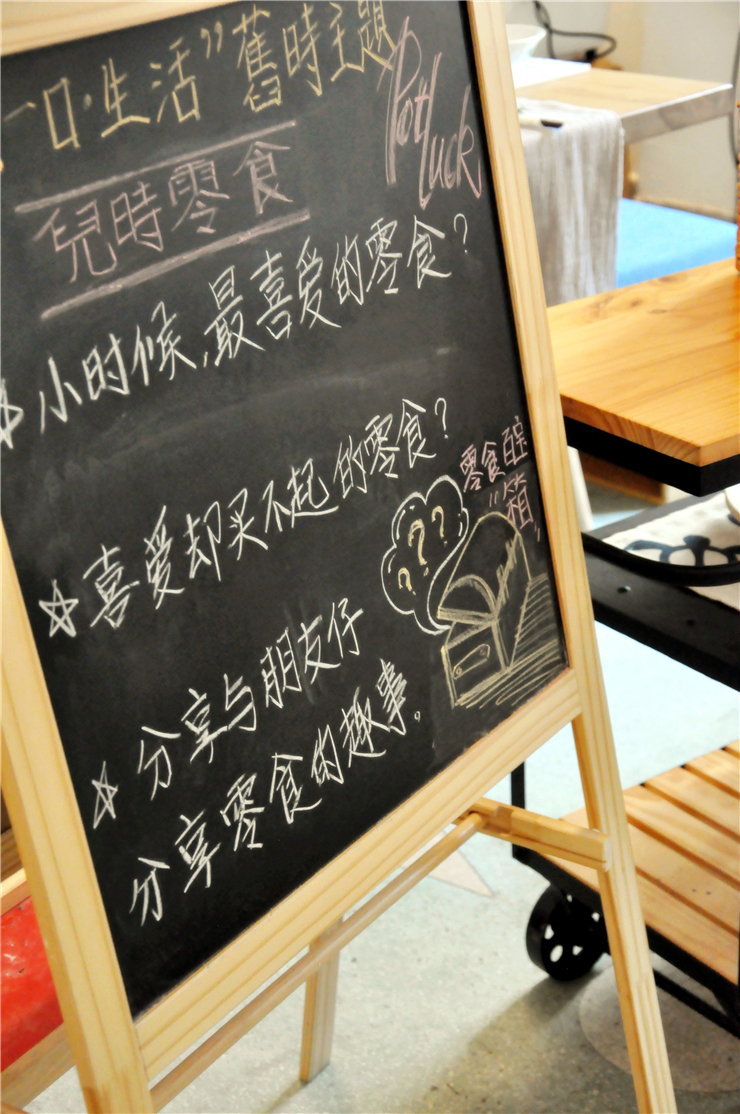 一日·生活”舊時主題
Potluck
兒時零食
小时候,最喜爱的零食?
喜爱却买不起的零食?
零食百宝
“箱”
???
分享与朋友仔
分享零食的趣事。